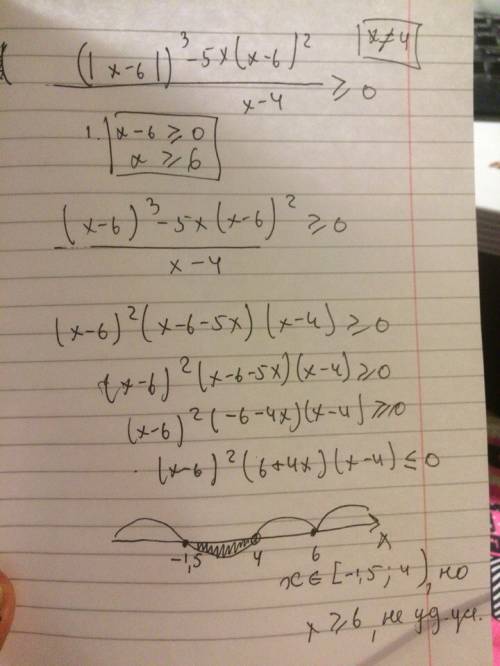 x≠4
(|x-6|)³-5x(x-6)² / x-4 ≥ 0
1. x-6 ≥ 0
x ≥ 6
(x-6)³-5x(x-6)² / x-4 ≥ 0
(x-6)²(x-6-5x)(x-4) ≥ 0
(x-6)²(x-6-5x)(x-4) ≥ 0
(x-6)²(-6-4x)(x-4) ≥ 0
(x-6)²(6+4x)(x-4) ≤ 0
-1,5 4 6 x
x∈[-1,5; 4), но
x ≥ 6, не уд. ус.